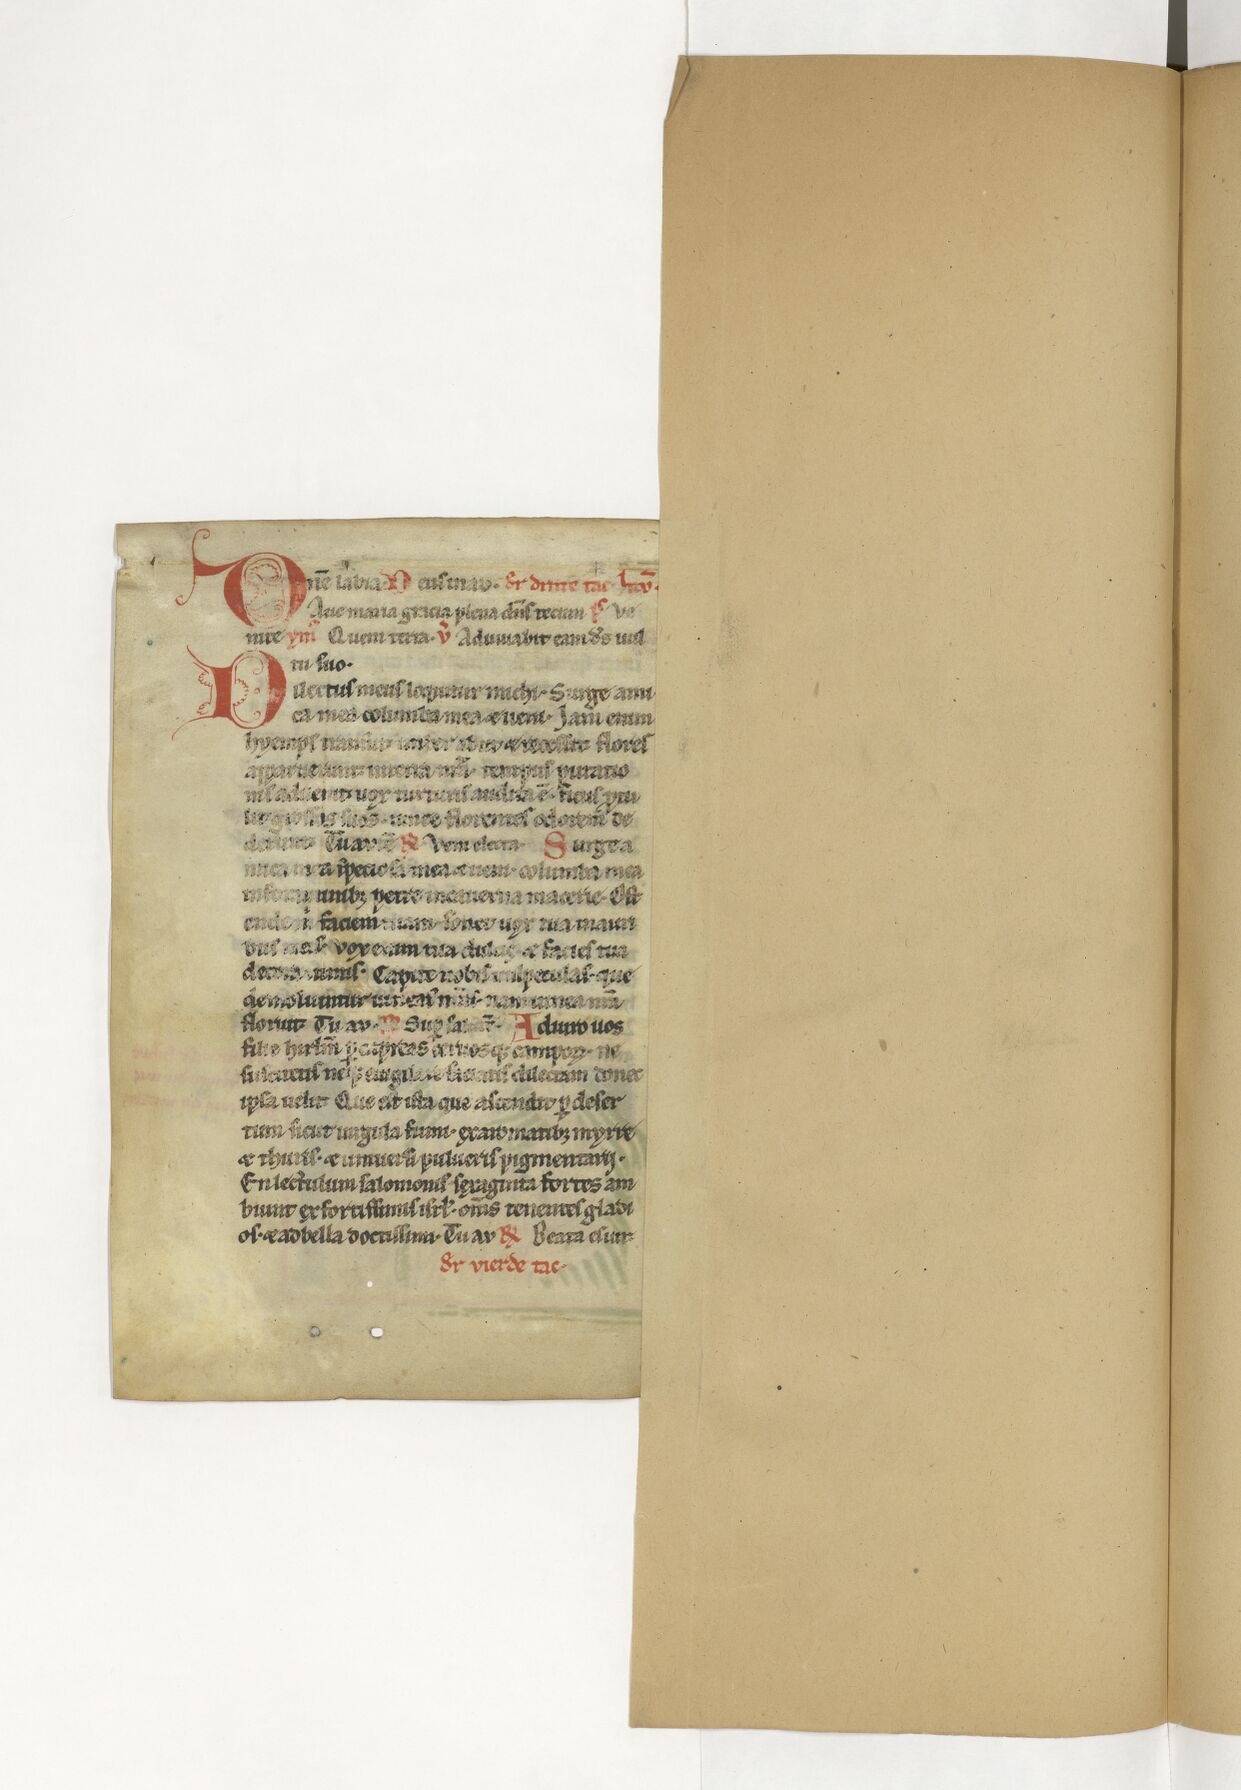 Dñe labia D eus in aд· Dr dritte tac Inuit̄·
Aue maria gracia plena dñs tecum ps Ve
nite ym̄ Quem terra· v̄ Adiuuabit eam ds uul
tu suo·
Dilectus meus loquitur michi· Surge ami
ca mea columba mea & ueni· Jam enim
hyemps transiit imber abiit & recessit flores
apparuerunt in terra nr̄a· tempus putatio
nis aduenit uox turturis audita ē· ficus ptu
lit grossos suos· uinee florentes odorem de
derunt· Tu au Veni electa· Surge a
mica mea speciosa mea & ueni· columba mea
in foraminibꝫ petre in cauerna macerie· Ost
ende m̄ faciem tuam· sonet uox tua in auri
bus meis· vox enim tua dulcis & facies tua
decora nimis· Capite nobis uulpeculas· que
demoliuntur uineas nr̄as· nam uinea nr̄a
floruit Tu au· Sup salutē· Adiuro uos
filie hirl̄m p capreas ceruosqꝫ campoꝝ· ne
suscitetis neqꝫ euigilare faciatis dilectam donec
ipsa uelit Que est ista que ascendit p deser
tum sicut uirgula fumi· ex aromatibꝫ myrre
& thuris· & uniuersi pulueris pigmentarij·
En lectulum salomonis· sexaginta fortes am
biunt ex fortissimis isrl̄· om̄s tenentes gladi
os· & ad bella doctissimi· Tu au R̄ Beata es uir
Dr vierde tac·